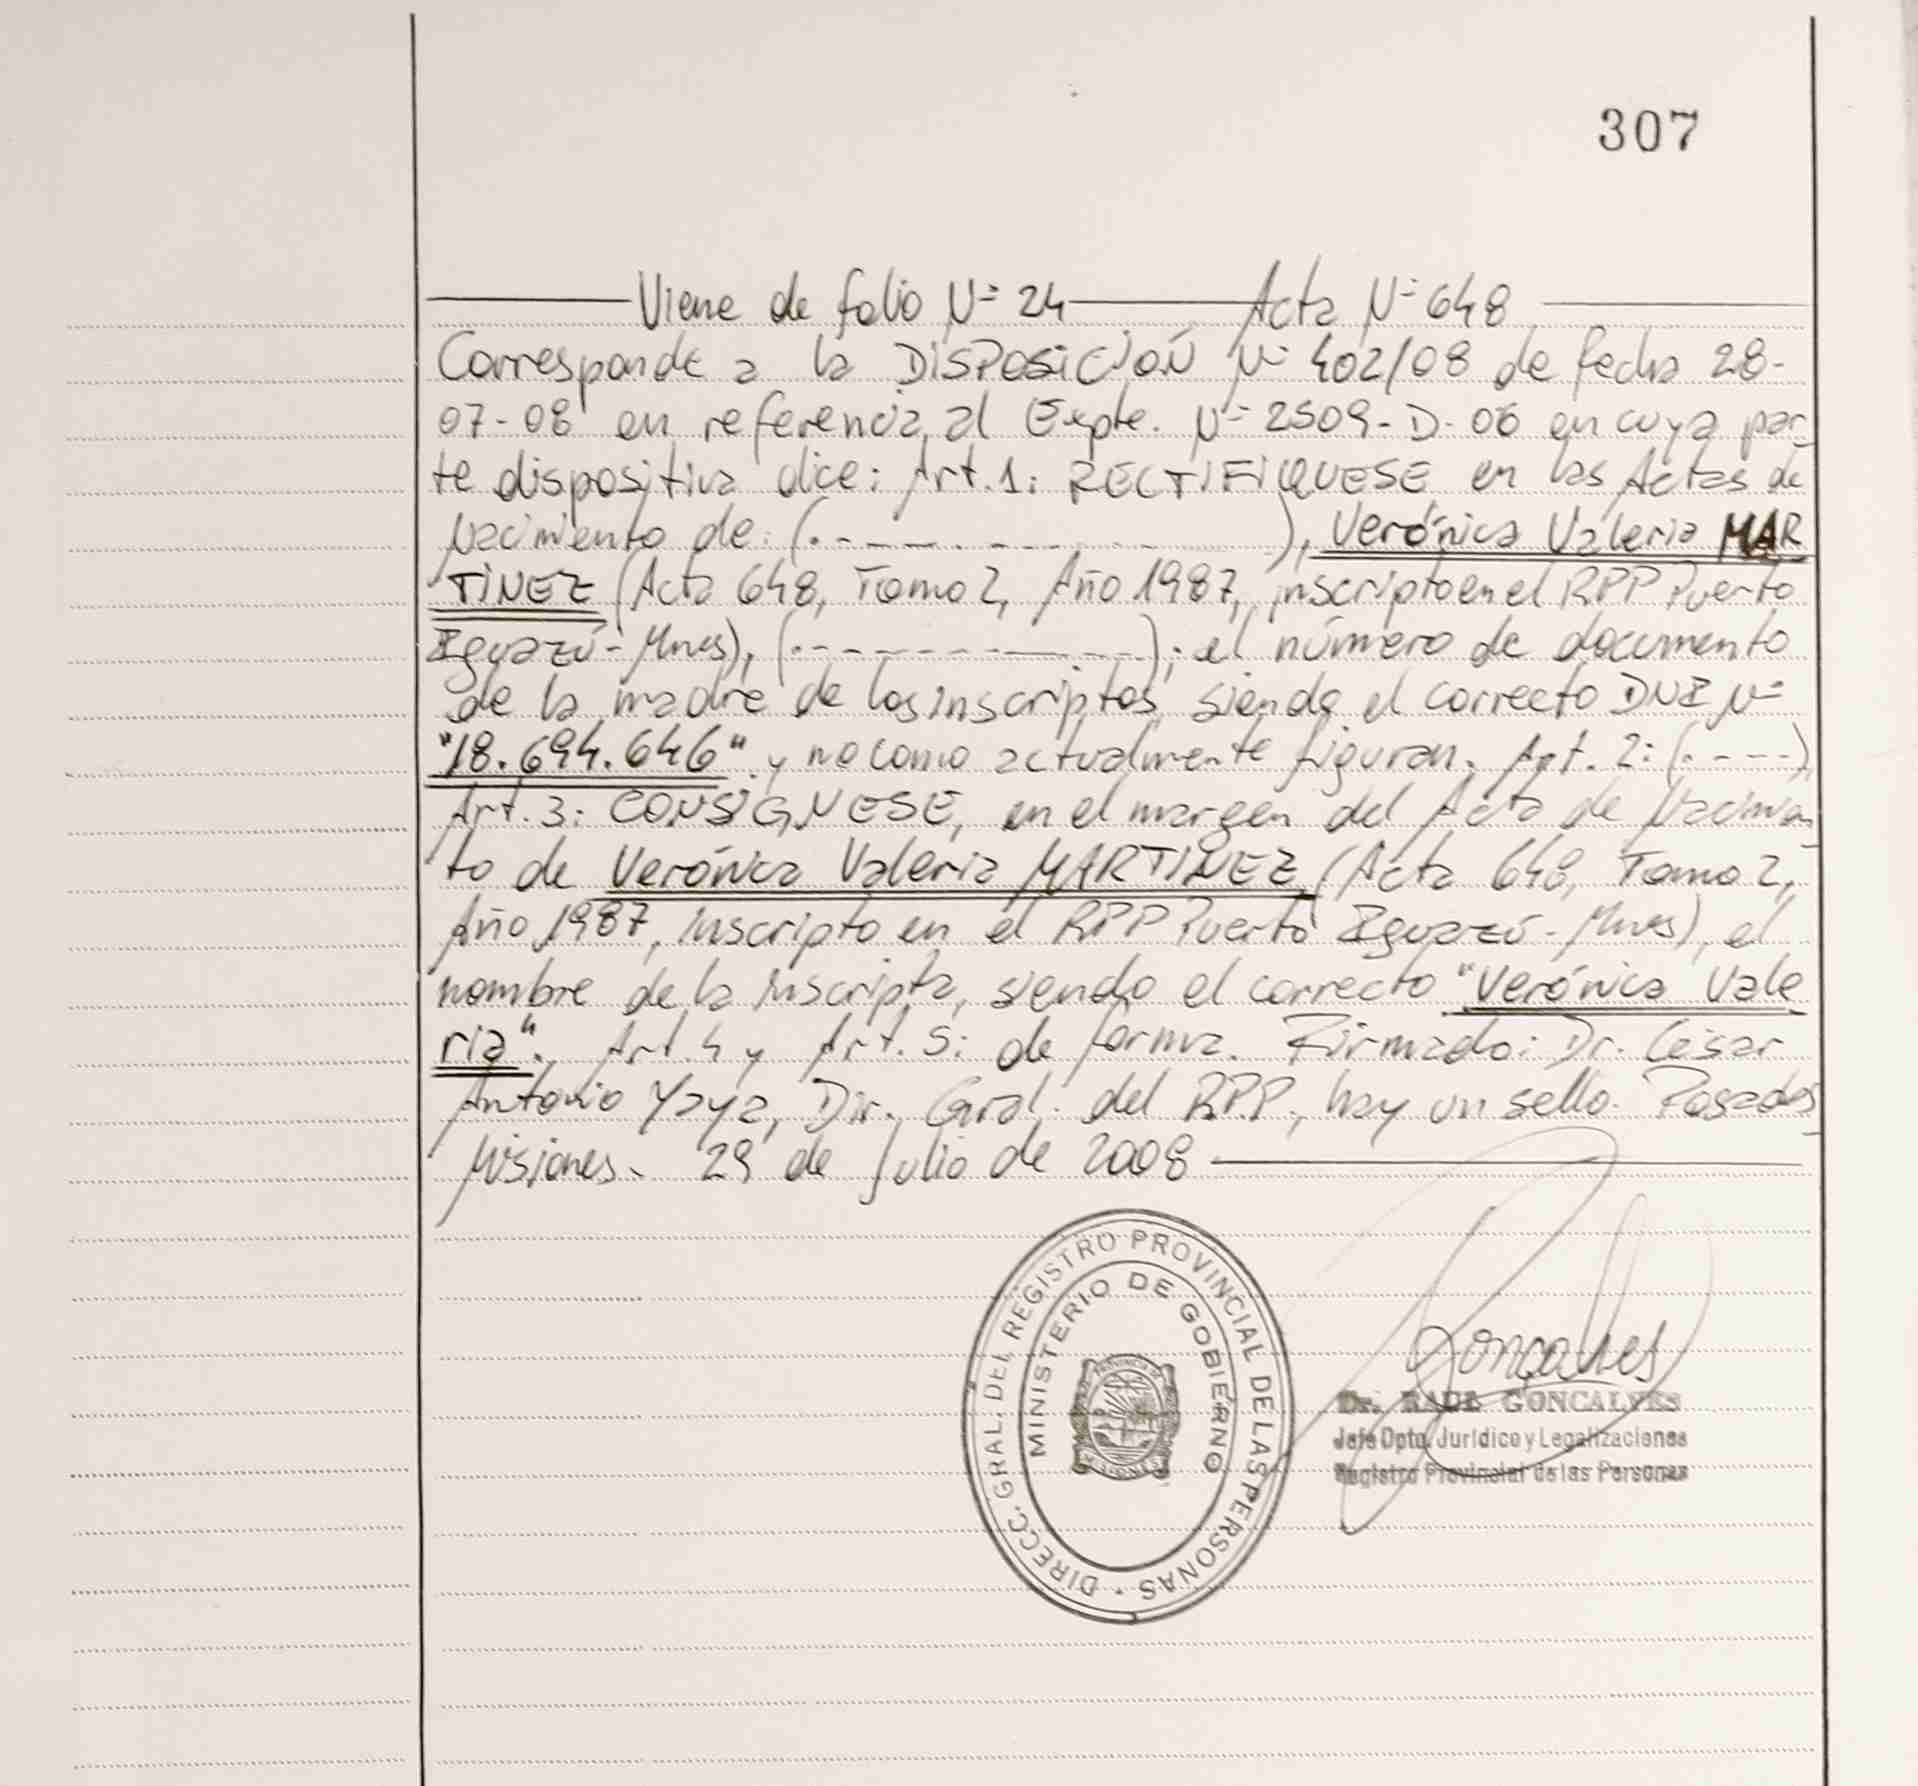 307
Viene de folio Nº 24 Acta Nº 648
Corresponde a la DISPOSICIÓN Nº 402/08 de fecha 28-
07-08 en referencia al Expte. Nº 2509-D-06 en cuya par-
te dispositiva dice: Art. 1: RECTIFIQUESE en las Actas de
Nacimiento de: (.-----------), Verónica Valeria MAR
TINEZ (Acta 648, Tomo 2, Año 1987, inscripto en el RPP Puerto
Iguazú-Mnes), (.-----------); el número de documento
de la madre de los inscriptos, siendo el correcto DNI Nº
"18.694.646" y no como actualmente figuran. Art. 2: (.----)
Art. 3: CONSIGNESE, en el margen del Acta de Nacimien
to de Verónica Valeria MARTINEZ (Acta 648, Tomo 2,
Año 1987, inscripto en el RPP Puerto Iguazú-Mnes), el
nombre de la inscripta, siendo el correcto "Verónica Vale
ria". Art. 4 y Art. 5: de forma. Firmado: Dr. César
Antonio Yaya, Dir. Gral. del RPP., hay un sello. Posadas
Misiones. 29 de Julio de 2008
DIRECC. GRAL. DEL REGISTRO PROVINCIAL DE LAS PERSONAS
MINISTERIO DE GOBIERNO
PROVINCIA DE
MISIONES
Gonçalves
Dr. RAUL GONCALVES
Jefe Dpto. Jurídico y Legalizaciones
Registro Provincial de las Personas